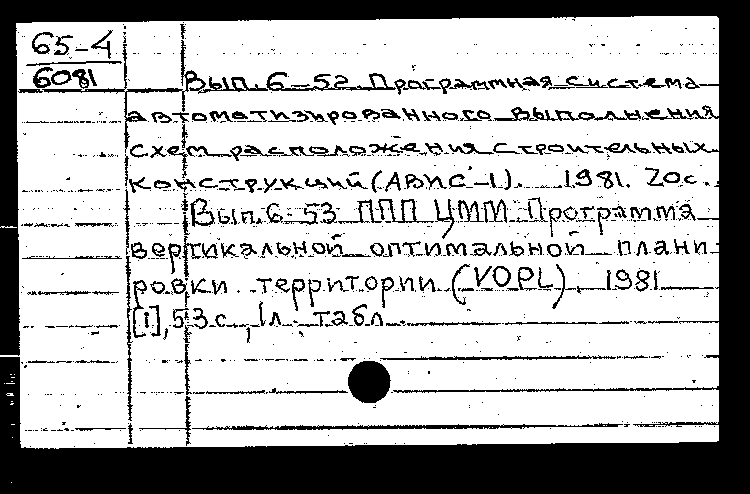 65-4
6081
Вып. 6-52. Программная система
автоматизированного выполнения
схем расположения строительных
конструкций (АВИС-1). 1981. 20с.
Вып. 6-53 ППП ЦММ. Программа
вертикальной оптимальной плани
ровки территории (VOPL). 1981
[1], 53с., 1л. табл.